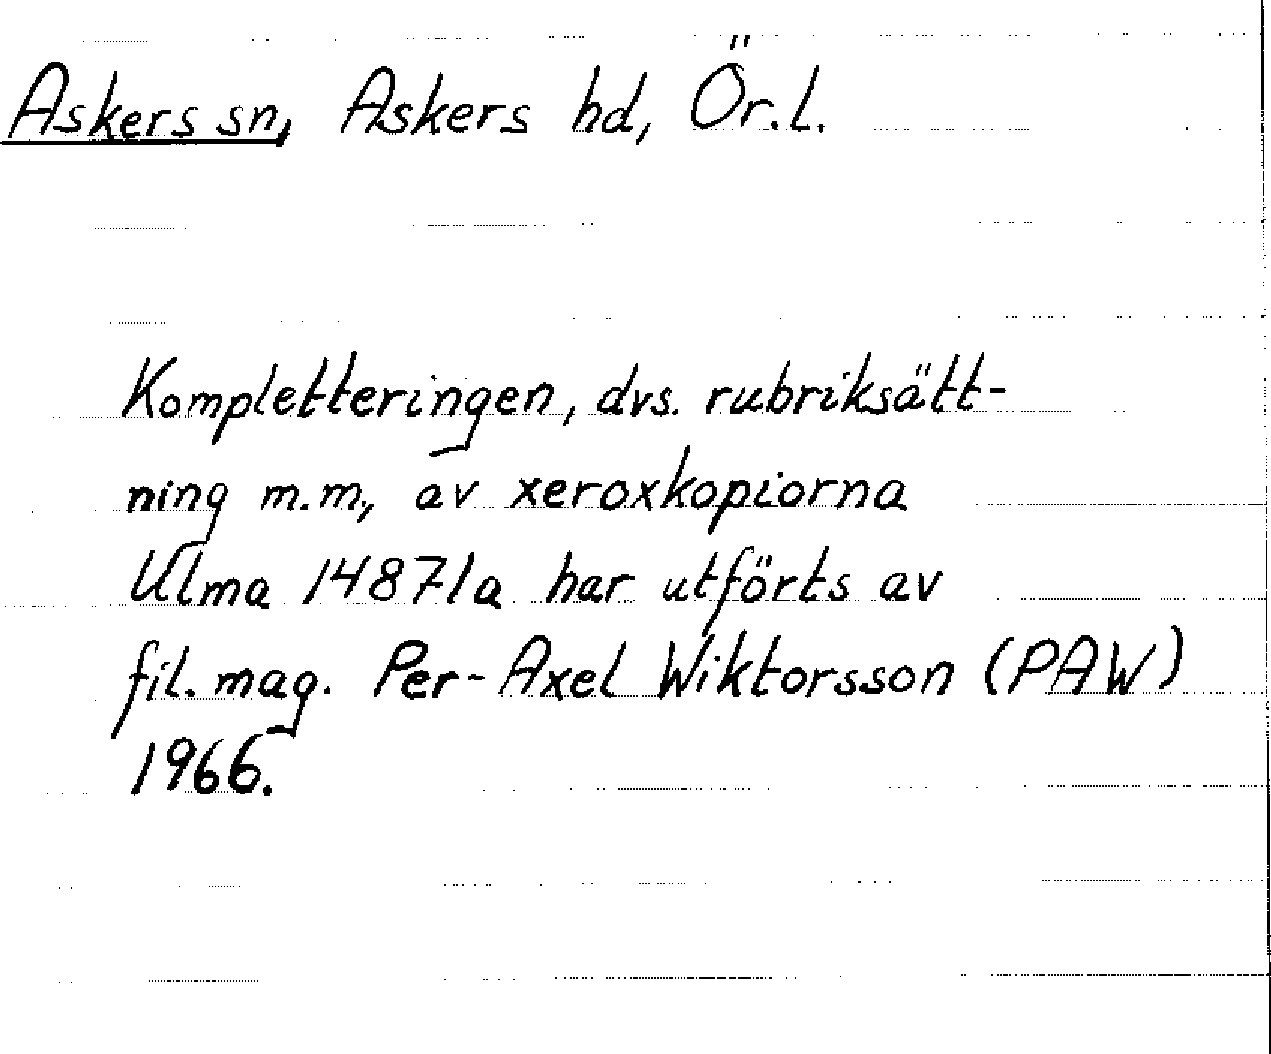 Askers sn, Askers hd, Ör.l.
Kompletteringen, dvs. rubriksätt-
ning m.m., av xeroxkopiorna
Ulma 14871a har utförts av
fil. mag. Per-Axel Wiktorsson (PAW)
1966.